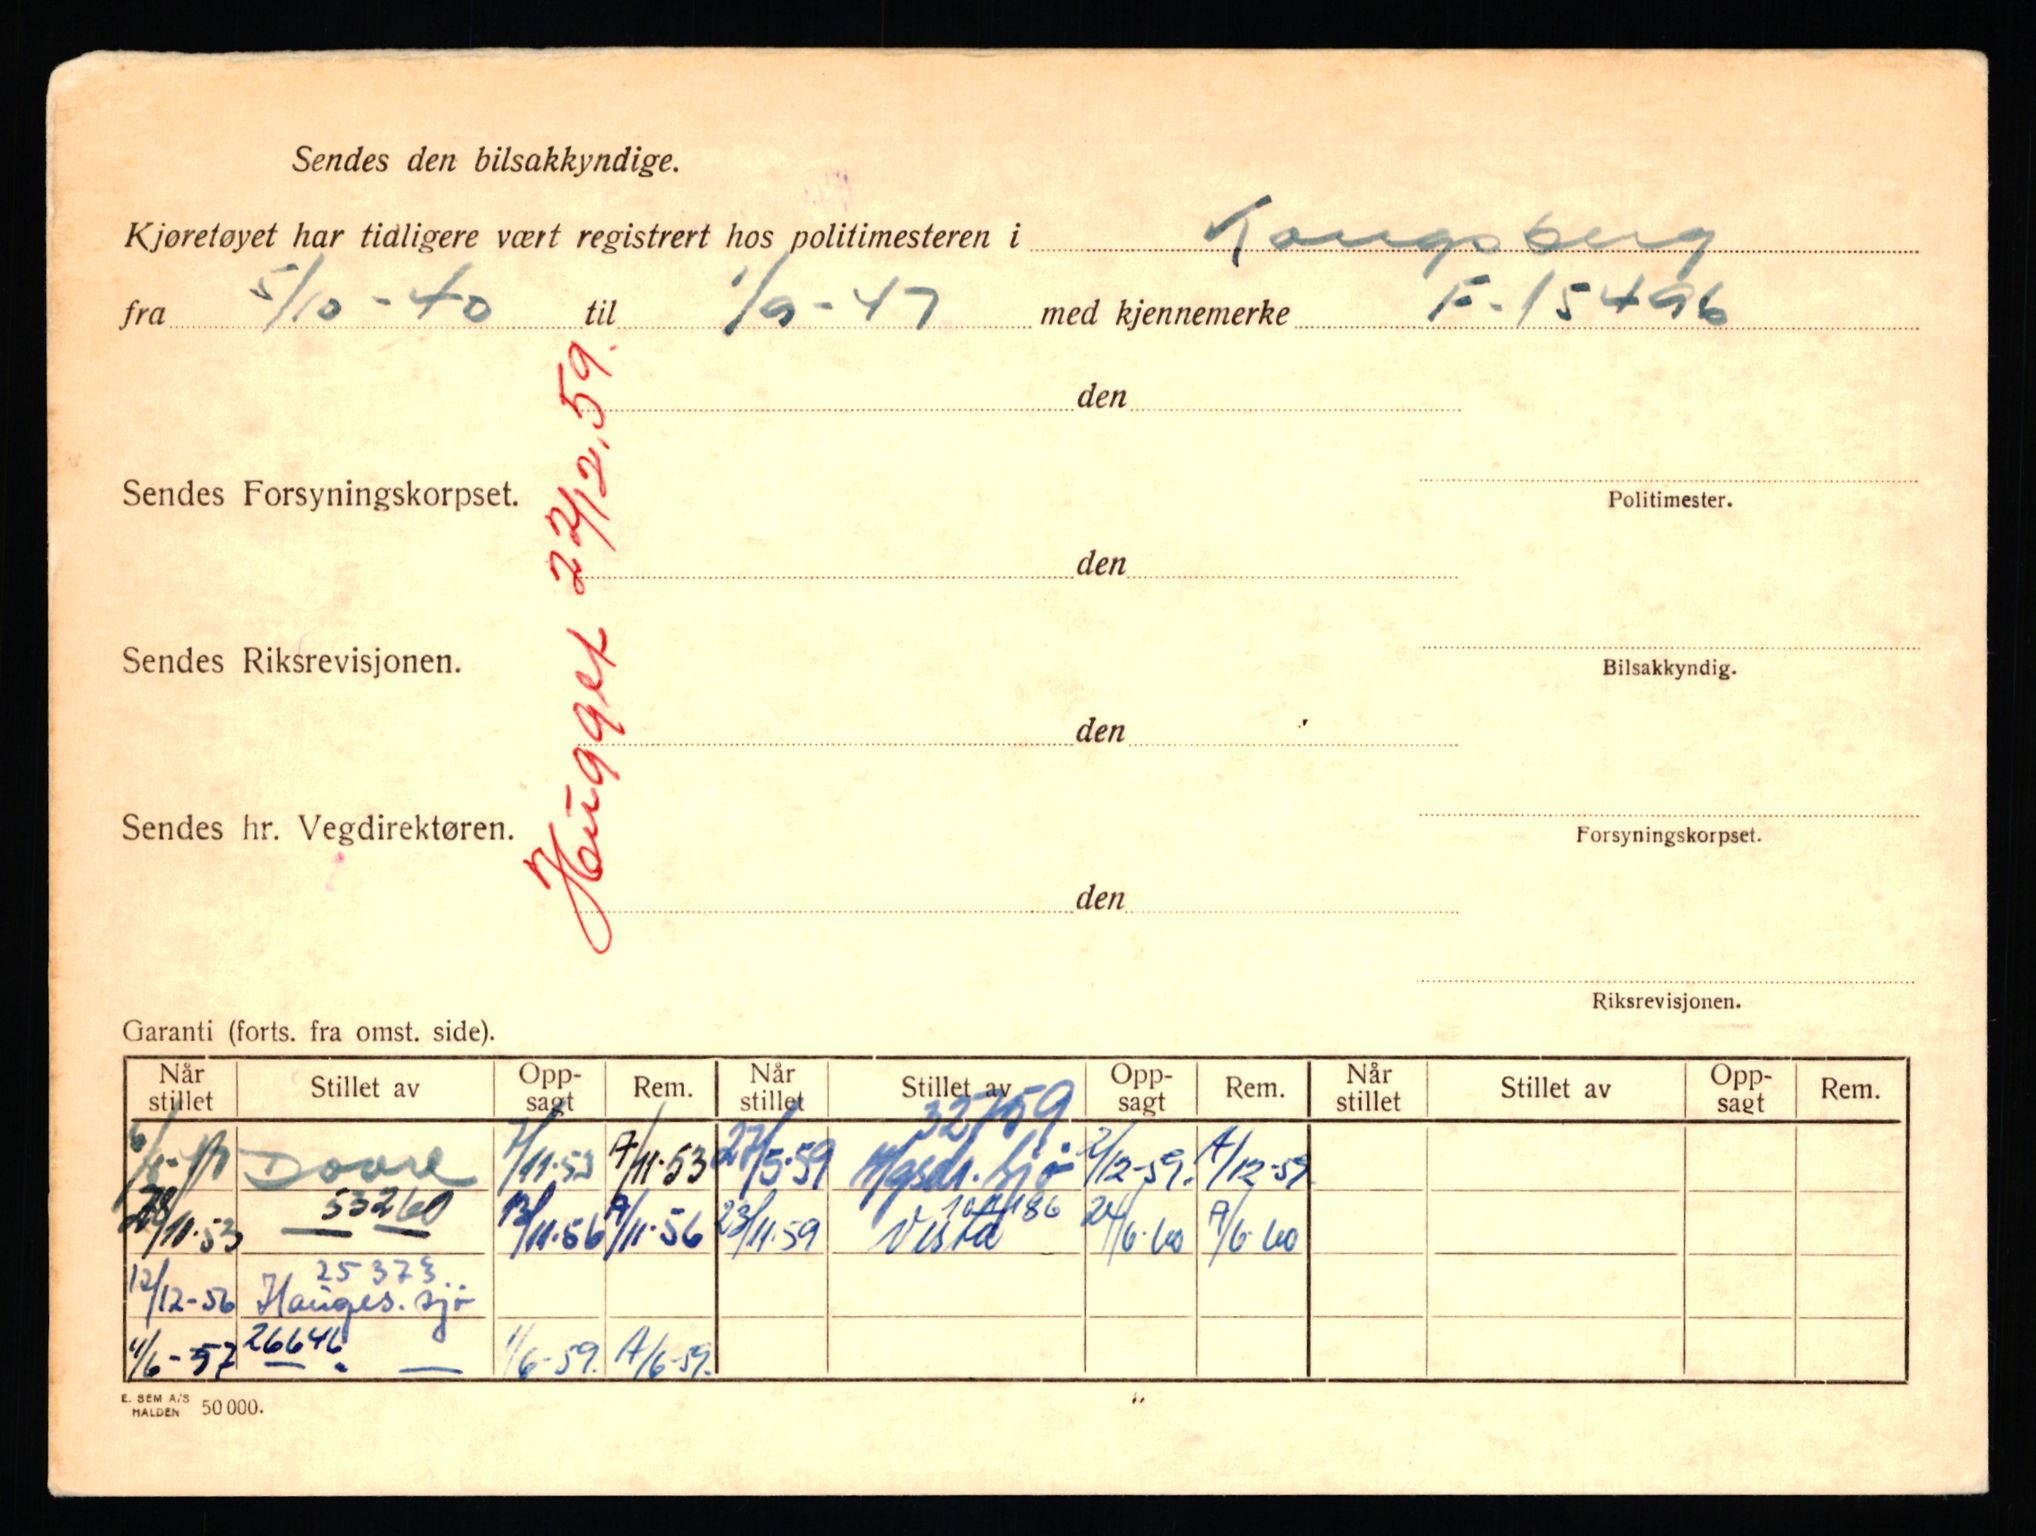 Sendes den bilsakkyndige.
Kjøretøyet har tidligere vært registrert hos politimesteren i Kongsberg
fra 5/10-40 til 1/9-47 med kjennemerke F-15496
den
Sendes Forsyningskorpset.
Politimester.
den
Sendes Riksrevisjonen.
Bilsakkyndig.
den
Sendes hr. Vegdirektøren.
Forsyningskorpset.
den
Riksrevisjonen.
Hugget 22/12.59.
Garanti (forts. fra omst. side).
Når stillet Stillet av Opp-sagt Rem. Når stillet Stillet av Opp-sagt Rem. Når stillet Stillet av Opp-sagt Rem.
32759
Dovre 7/11-53 A/11-53 27/5-59 Hgsdr. sjø 2/12-59. A/12-59
28/11-53 — 53260 — 13/11-56 A/11-56 23/11-59 Vesta 24/6-60 A/6-60
25373
12/12-56 Hauges. sjø
26646
4/6-57 — " — 1/6-59. A/6-59.
E. SEM A/S
HALDEN 50 000.